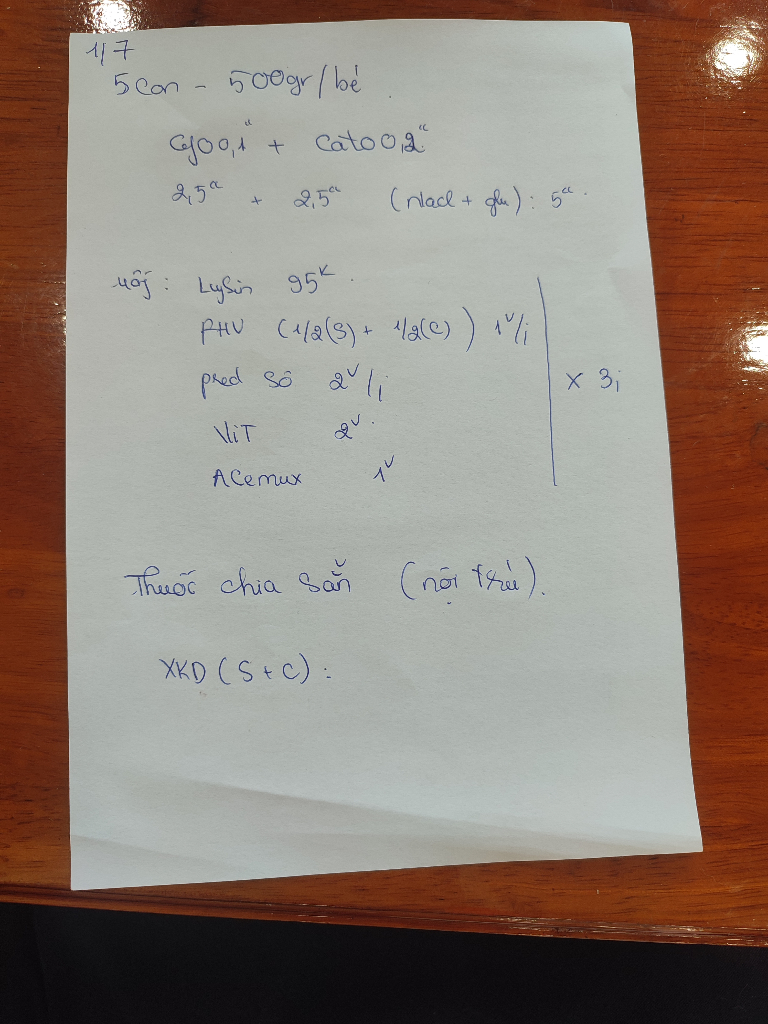 1/7
5 con - 500gr/bé
Cefo 0,1ᵃ + Cato 0,2ᵃ
2,5ᵃ + 2,5ᵃ (nacl + glu) : 5ᵃ
uống : Lysin 95ᵏ
PHV (1/2(S) + 1/2(C)) 1ᵛ/i
pred số 2ᵛ/i
ViT 2ᵛ
ACemux 1ᵛ
x 3i
Thuốc chia sẵn (nội trú).
XKD (S + C) :